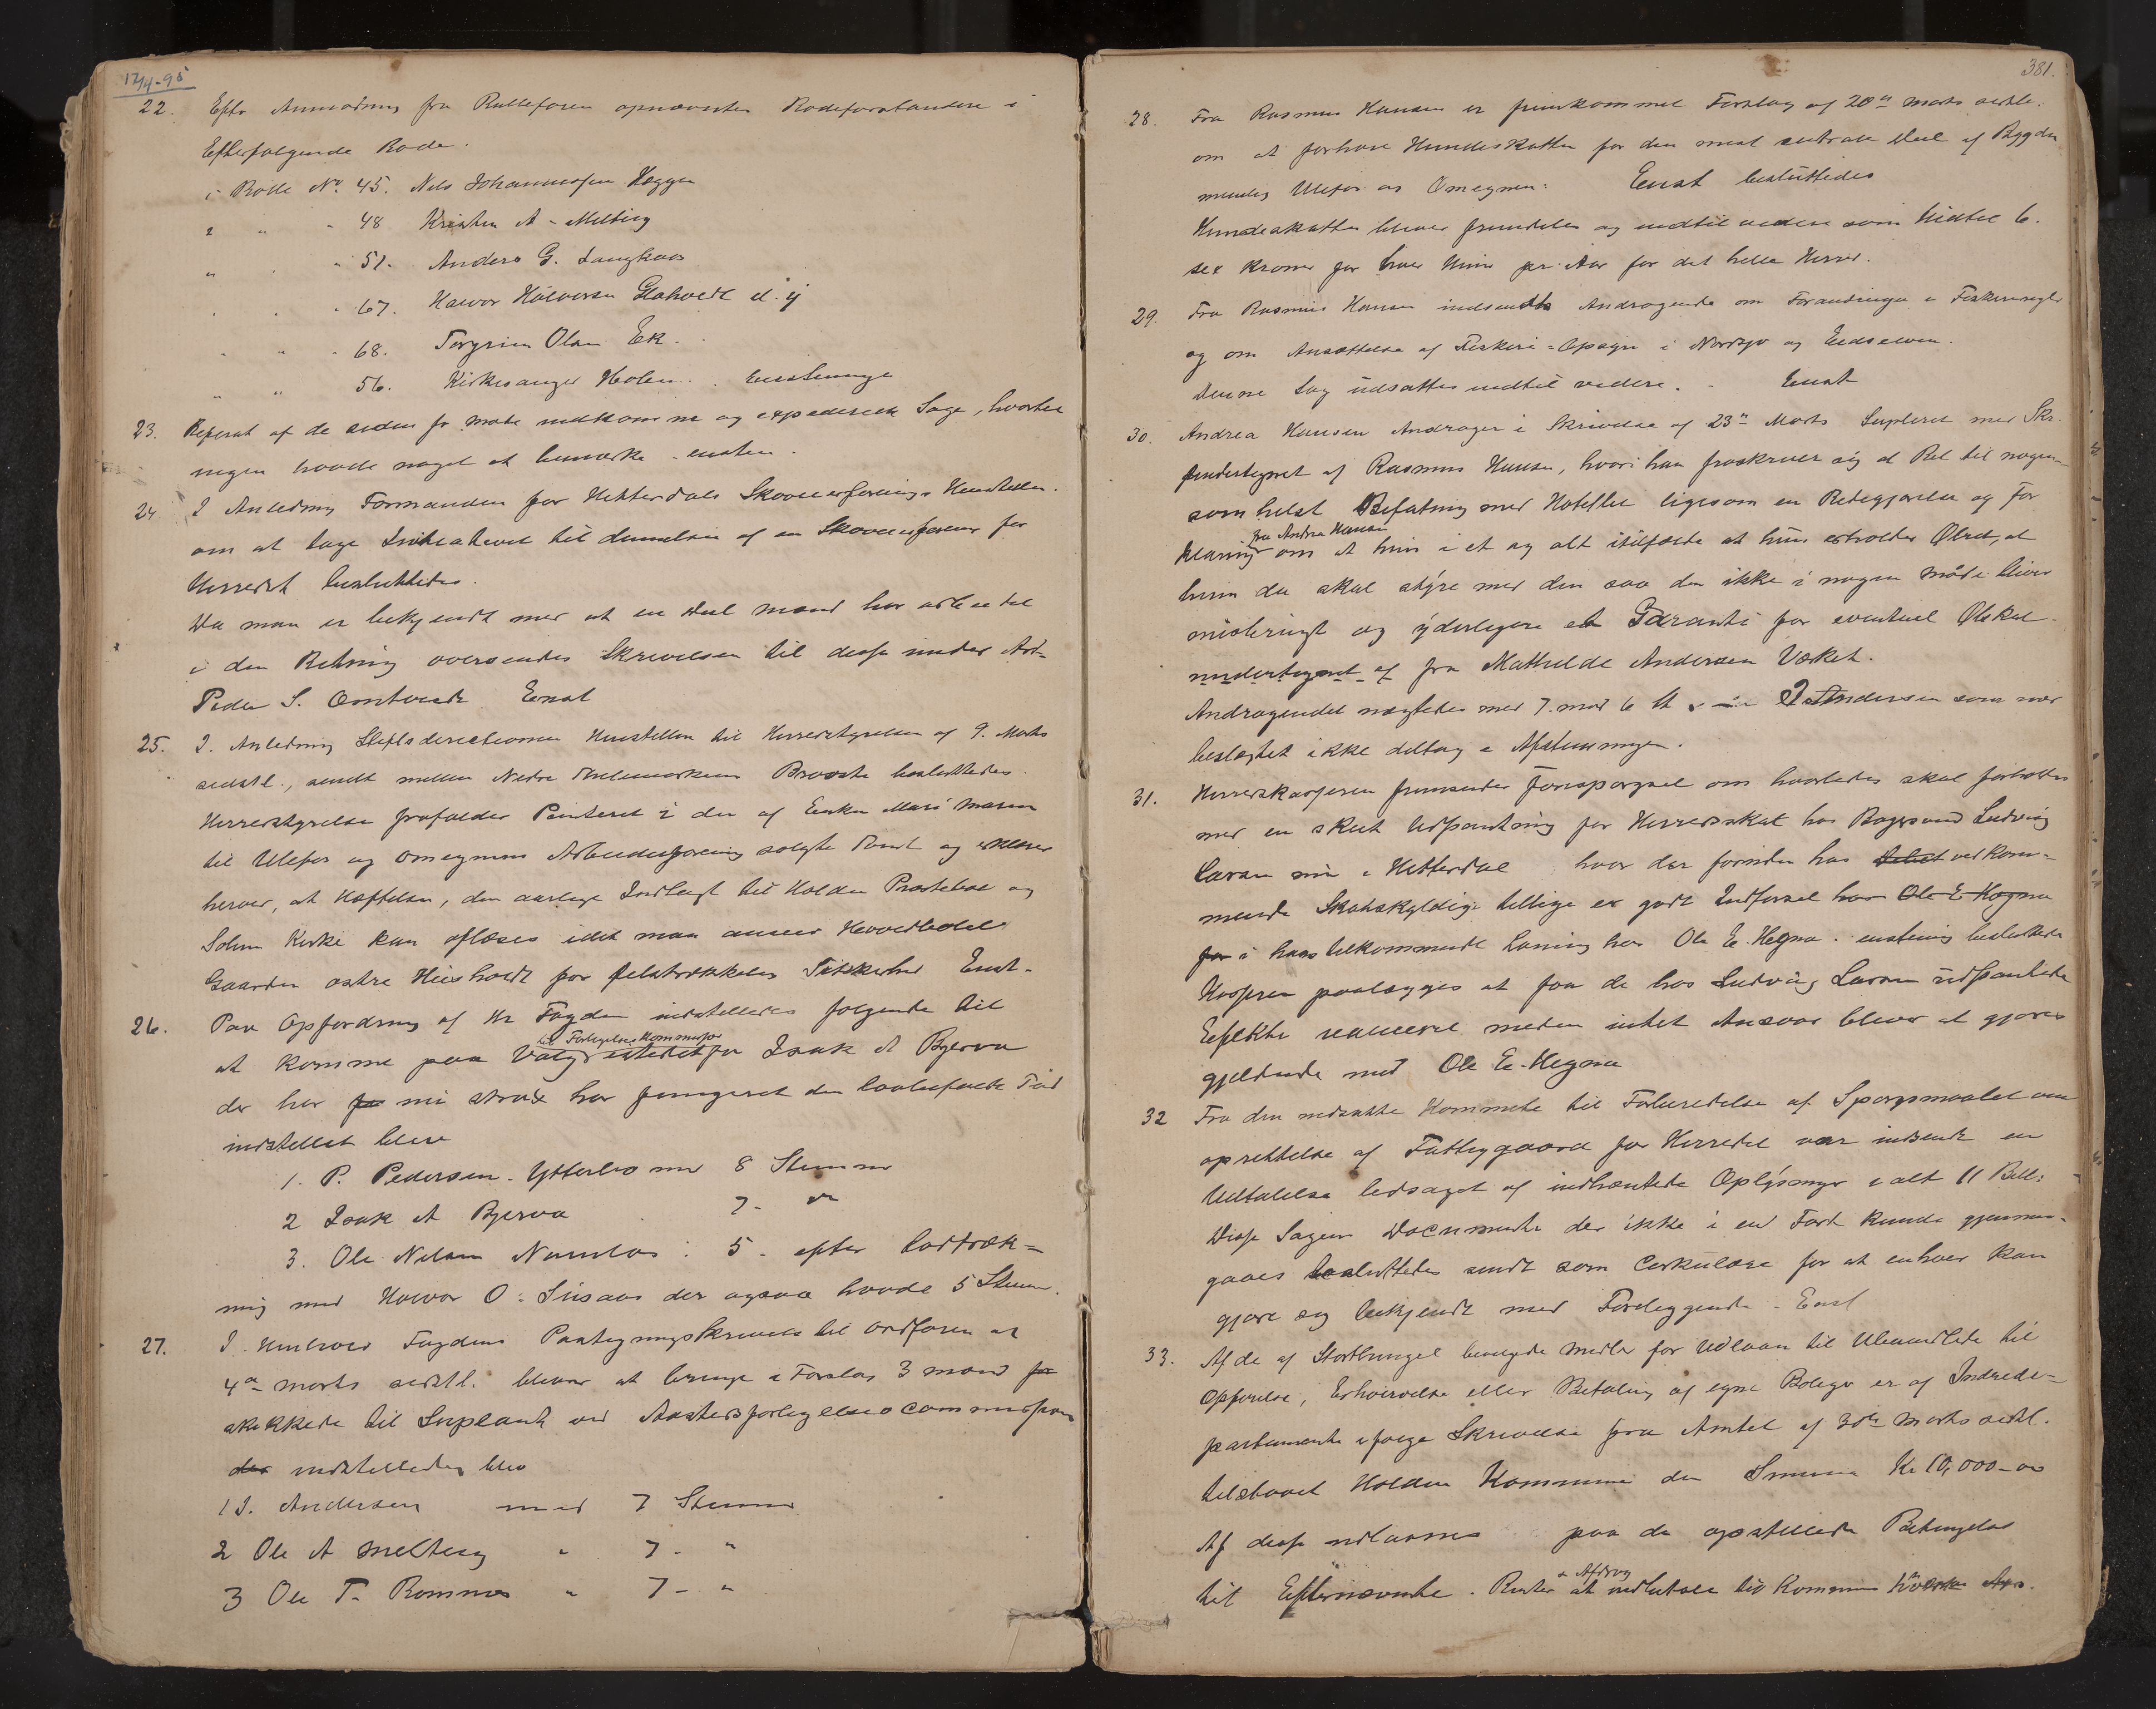 17/4-95
22. Efter Anmodning fra Rulleføren opnævntes Rodeforstandere i
Efterfølgende Rode.
i Rode No. 45. Nils Johannessen Hegga
" " " 48 Kristen A. Melteig
" " " 51. Anders G. Langkaas
" " " 67. Halvor Halvorsen Glahoelt
" " " 68. Torgrim Olsen Ek.
" " 56. Kirkesanger Holen. Enstemmige
23. Referat af de siden fr møte indkomne og expederede Sage, hvortil
ingen havde noget at bemærke. ensten.
24 I Anledning Formanden for Hitterdals Skoveierforenings Henstillen.
om at tage Initiativet til dannelsen af en Skoveierforening for
Herredet besluttedes.
Da man er bekjendt med at en Deel mænd har arbeidet
i den Retning oversendes Skrivelsen til disse under Adr.
Peder S. Omtvedt. Enst
25. I. Anledning Stiftsdirectionen Henstillen til Herredstyrelsen af 9. Marts
sidstl., sendt mellem Nedre Thelemarkens Provste besluttedes.
Herredstyrelse frafalder Panteret i den af Enke Mari Maren
til Ulefos og omegnens Arbeiderforening solgte Tomt og erklærer
herved, at Hæftelsen, den aarlige Indtægt til Holden Præstebol og
Solum Kirke kan afløses idet man anseer Hovedbølet
Gaarden østre Hiisholdt for tilstrækkelig Sikkerhed Enst.
26. Paa Opfordring af Hr Fogden indstilledes følgende til
til Forligelses Kommissær
at komme paa Valg istedetfor Isak A Bjerva
der har nu straks har fungeret den lovbefalede Tid
indstillet blev
1. P. Pedersen Ytterbø med 8 Stemmer
2 Isak A Bjerva 7 - "
3. Ole Nilsen Namløs : 5 - efter Lodtræk=
ning med Halvor O. Lisaas der ogsaa havde 5 Stem.
27. I Henhold Fogdens Paategningsskrivelse til ordføren af
4de marts sidstl. blever at bringe i Forslag 3 mænd
skikkede til Supleant ved Aastedsforligelsescommissionen
der indstilledes blev
1 I. Andersen med 7 Stemmer
2 Ole A Melteig " 7 - "
3 Ole T. Romnes " 7 - "
381.
28. Fra Rasmus Hansen er fremkommet Forslag af 20de marts sidstl.
om at forhøie Hundeskatten for den mest centrale Deel af Bygden
nemlig Ulefos og Omegnen: Enst besluttedes
Hundeskatten bliver fremdeles og indtil videre som hidtil 6.
sex kroner for hver Hund pr. Aar for det hele Herred.
29. Fra Rasmus Hansen indsendte Andragende om Forandringer i Fiskeriregler
og om Ansættelse af Fiskeri=Opsyn i Nordsjø og Eidselven.
Denne Sag udsattes indtil videre. - Enst
30. Andrea Hansen Andrager i Skrivelse af 23de Marts Supleret med Skr.
undertegnet af Rasmus Hansen, hvori han fraskriver sig al Ret til nogen=
somhelst Befatning med Hotellet ligesom en Redegjørelse og For
fra Andrea Hansen
klaring om at hun i et og alt itilfælde at hun erholder Ølret, at
hun da skal styre med den saa den ikke i nogen Måde bliver
misbrugt og yderligere et Garanti for eventuel Ølskat
undertegnet af fra Mathilde Andersen Væket.
Andragendet nægtedes med 7 mod 6 St. I. Andersen som nær
beslægtet ikke deltog i Afstemningen.
31. Herredskassereren fremsender Forespørgsel om hvorledes skal forholdes
med en skeet Udpantning for Herredsskat hos Bagersvend Ludvig
Larsen nu i Hitterdal hvor der foruden hos Debet vedkom=
mende Skatskyldige tillige er gjort Indførsel hos Ole E Hegna
for i hans tilkommende Lønning hos Ole E. Hegna. enstemig besluttedes
Kassreren paalægges at faa de hos Ludvig Larsen udpantede
Effekter realiseret meden intet Ansvar bliver at gjøres
gjeldende mod Ole E. Hegna
32 Fra den nedsatte Kommite til Forberedelse af Spørgsmaalet om
oprettelse af Fattiggaard for Herredet var indsendt en
Udtalelse ledsaget af indhentede Oplysninger i alt 11 Bill:
Disse Sagens Documente der ikke i en Fart kunde gjennem=
gaaes besluttedes sendt som Cirkulære for at enhver kan
gjøre sig bekjendt med Foreliggende - Enst
33. Af de af Storthinget bevilgede Midler for Udlaan til Ubemidlede til
Opførelse, Erhvervelse eller Betaling af egne Boliger er af Indrede=
partementet ifølge Skrivelse fra Amtet af 30te Marts sidstl.
tilstaaet Holden Kommune den Summa Kr 10,000-00
Af disse udlaanes paa de opstillede Betingelser
& Afdrag
til Efternævnte. Renter at indbetale til Kommunen